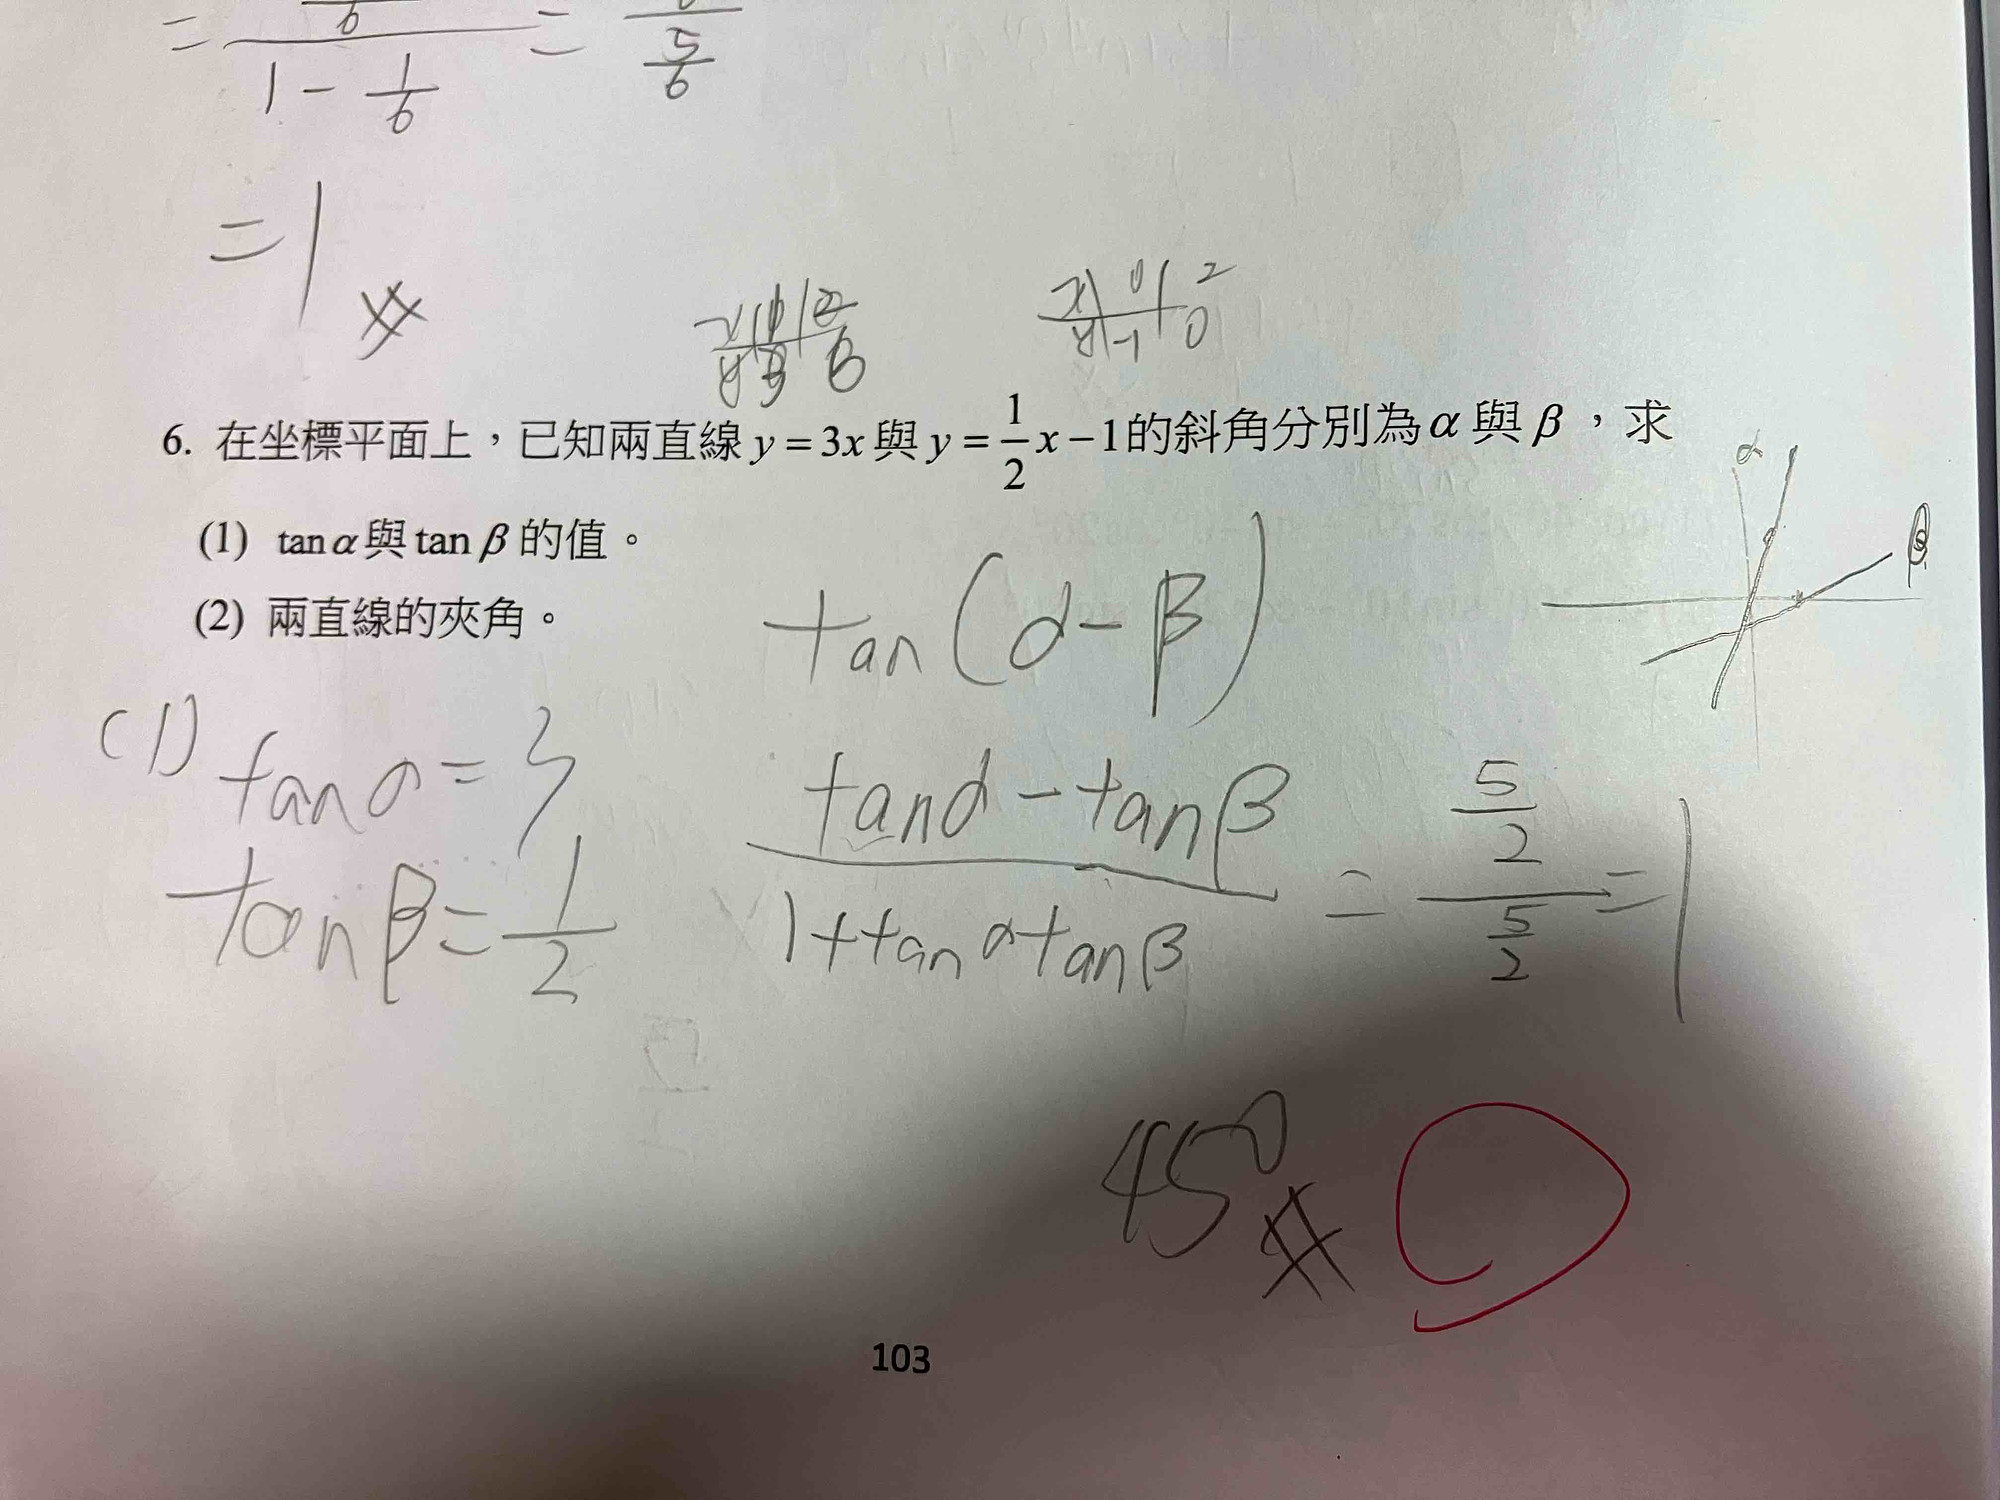 = 6 / (1 - 1/6) = / (5/6)
= 1
x 0 2
y -1 0
6. 在坐標平面上，已知兩直線 y = 3x 與 y = 1/2 x − 1 的斜角分別為 α 與 β ，求
α
β
(1) tan α 與 tan β 的值。
(2) 兩直線的夾角。
tan(α-β)
(1) tan α = 3
tan β = 1/2
(tan α - tan β) / (1 + tan α tan β) = (5/2) / (5/2) = 1
45°
103